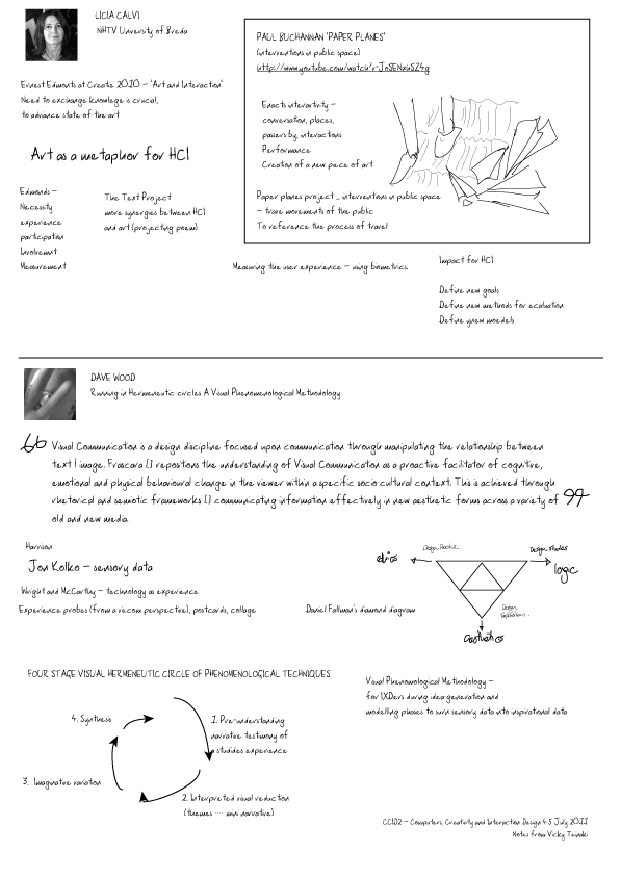 LICIA CALVI
NHTV University of Breda
Ernest Edmonds at Create 2010 – 'Art and Interaction'
Need to exchange knowledge is crucial,
to advance state of the art
Art as a metaphor for HCI
Edmonds –
Necessity
experience
participation
Involvement
Measurement
The Text Project
more synergies between HCI
and art (projecting poem)
PAUL BUCHANNAN 'PAPER PLANES'
(interventions in public space)
Enacts interactivity –
conversation, places,
passers by, interactions
Performance
Creation of a new piece of art
Paper planes project _ interventions in public space
– trace movements of the public
To reference the process of travel
Measuring the user experience – using biometrics
Impact for HCI
Define new goals
Define new methods for evaluation
Define new models
DAVE WOOD
'Running in Hermeneutic circles A Visual Phenomenological Methodology
Visual Communication is a design discipline focused upon communication through manipulating the relationship between
text | image. Frascara [] repositions the understanding of Visual Communication as a proactive facilitator of cognitive,
emotional and physical behavioural change in the viewer within a specific socio-cultural context. This is achieved through
rhetorical and semiotic frameworks [] communicating information effectively in new aesthetic forms across a variety of
old and new media.
Harrison
Jon Kolko – sensory data
Wright and McCarthy – technology as experience
Experience probes (from a viewer perspective), postcards, collage
Daniel Fallman's diamond diagram
Design Practice
Design Studies
logic
Design
Exploration
aesthetics
FOUR STAGE VISUAL HERMENEUTIC CIRCLE OF PHENOMENOLOGICAL TECHNIQUES
4. Synthesis
1. Pre-understanding
narrative testimony of
studides experience
3. Imaginative variation
2. Interpreted visual reduction
(themes ---- mini narrative)
Visual Phenomological Methodology –
for IXDers during idea generation and
modelling phases to turn sensory data into inspirational data
CCID2 – Computers, Creativity and Interaction Design 4-5 July 2011
Notes from Vicky Teinaki